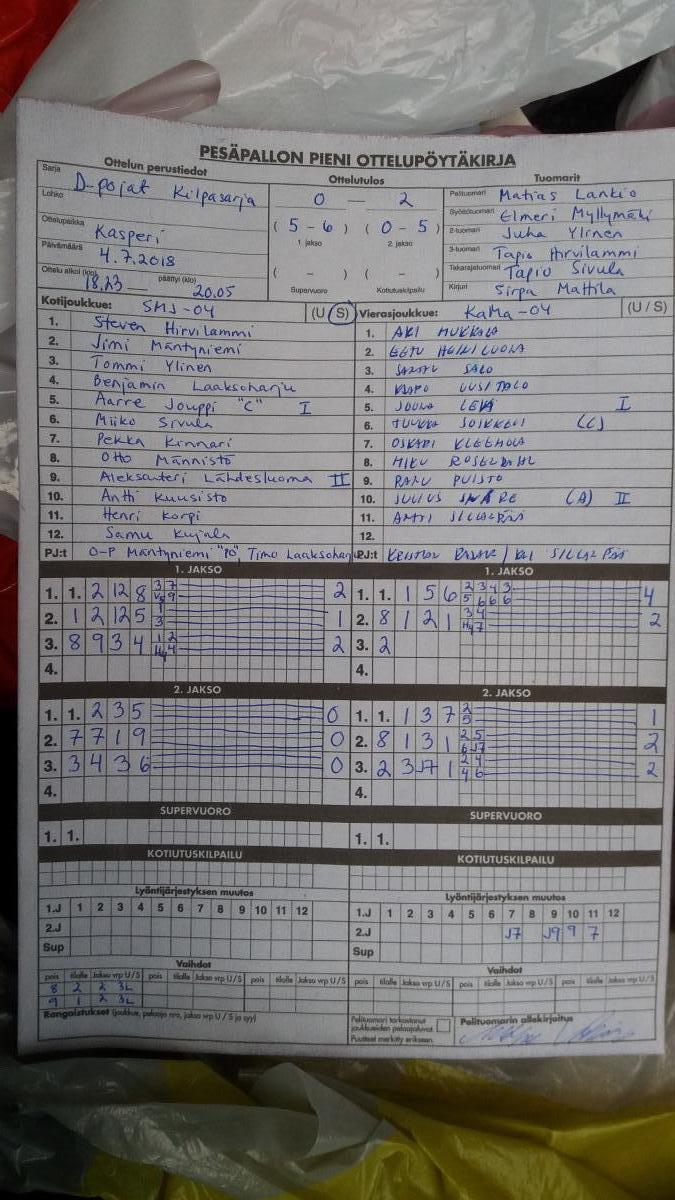 PESÄPALLON PIENI OTTELUPÖYTÄKIRJA
Ottelun perustiedot
Ottelutulos
Tuomarit
Sarja
D-pojat Kilpasarja
Lohko
Ottelupaikka
Kasperi
Päivämäärä
4.7.2018
Ottelu alkoi (klo) 18.23 — päättyi (klo) 20.05
0 — 2
( 5 - 6 ) ( 0 - 5 )
1. jakso 2. jakso
( - ) ( - )
Supervuoro Kotiutuskilpailu
Pelituomari Matias Lankio
Syöttötuomari Elmeri Myllymäki
2-tuomari Juha Ylinen
3-tuomari Tapio Hirvilammi
Takarajatuomari Tapio Sivula
Kirjuri Sirpa Mattila
Kotijoukkue: SMJ-04 (U/S)
1. Steven Hirvilammi
2. Jimi Mäntyniemi
3. Tommi Ylinen
4. Benjamin Laaksoharju
5. Aarre Jouppi "C" I
6. Miiko Sivula
7. Pekka Kinnari
8. Otto Männistö
9. Aleksanteri Lähdesluoma II
10. Antti Kuusisto
11. Henri Korpi
12. Samu Kujala
PJ:t O-P Mäntyniemi "PO", Timo Laaksoharju
Vierasjoukkue: KaMa-04 (U/S)
1. AKI
2. EETU
3. SALO
4. UUSITALO
5. JOONA LEVÄ I
6. (C)
7. OSKARI KLEEMOLA
8.
9. PUISTO
10. JULIUS (A) II
11.
12.
PJ:t
1. JAKSO
1. 1. 2 12 8 2
2. 1 12 12 5 1
3. 8 9 3 4 2
4.
2. JAKSO
1. 1. 2 3 5 0
2. 7 7 1 9 0
3. 3 4 3 6 0
4.
SUPERVUORO
1. 1.
KOTIUTUSKILPAILU
Lyöntijärjestyksen muutos
1.J 1 2 3 4 5 6 7 8 9 10 11 12
2.J
Sup
Vaihdot
pois tilalle Jakso vrp U/S pois tilalle Jakso vrp U/S pois tilalle Jakso vrp U/S
8 2 2 3L
9 1 2 3L
Rangaistukset (joukkue, pelaaja nro, jakso vrp U/S ja syy)
1. JAKSO
1. 1. 1 5 6 4
2. 8 1 2 1 2
3. 2
4.
2. JAKSO
1. 1. 1 3 7 1
2. 8 1 3 1 2
3. 2 3 J7 1 2
4.
SUPERVUORO
1. 1.
KOTIUTUSKILPAILU
Lyöntijärjestyksen muutos
1.J 1 2 3 4 5 6 7 8 9 10 11 12
2.J J7 J9 9 7
Sup
Vaihdot
pois tilalle Jakso vrp U/S pois tilalle Jakso vrp U/S pois tilalle Jakso vrp U/S
Pelituomari tarkastanut
joukkueiden pelaajaluvat
Puutteet merkitty erikseen.
Pelituomarin allekirjoitus